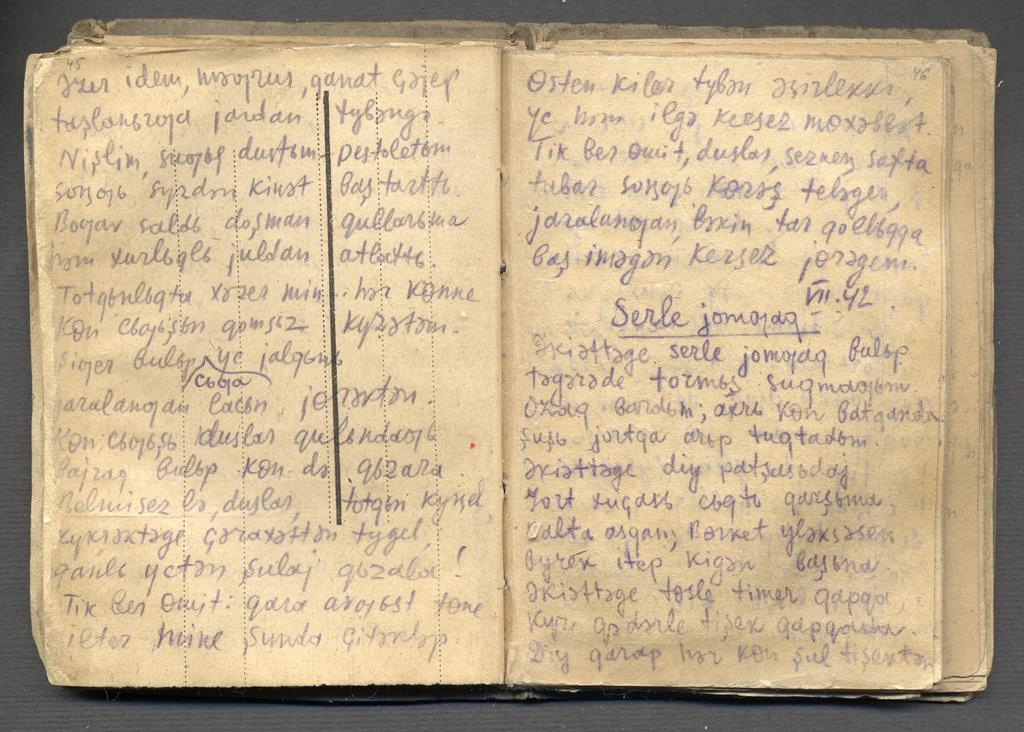 45
ezer idem, məƣrur, qanat çəjep
taşlanьrƣa jardan tybəngə.
Nişlim, soƣoş dustьm — pestoletьm
soŋƣь syzdən kinət baş tarttь.
Boƣav saldь doşman qullarьma
həm xurlьqlь juldan atlattь.
Totqьnlьqta xəzer min.. hər kønne
Køn cьƣьşьn qomsьz kyzətəm.
Şiƣer bulьp yc jalqьnь
cьƣa
jaralanƣan lacьn jørəktən.
Køn cьƣьşь duslar qulьndaƣь
bajraq bulьp køn-də qьzara
Belmisez lə, duslar, totqьn kyŋel,
kykrəktəge çəraxəttən tygel,
qanlь yctən şulaj qьzala!
Tik ber ømit: qara avgust tøne
ilter mine şunda çitəkləp.
46
Østen kiler tybən əsirlekkə,
yc həm ilgə kerşez məxəbbət.
Tik ber ømit, duslar, sezneŋ safta
tabar soŋƣь kørəş teləgen,
jaralanƣan, ləkin tar qollьqqa
baş iməgən kerşez jørəgem.
VII. 42
Serle jomƣaq
Əkiəttəge serle jomƣaq bulьp
təgərəde tormьş suqmaƣьm.
Ozaq bardьm; axrь køn batqanda
şuşь jortqa arьp tuqtadьm.
Əkiəttəge diy patşasьdaj
Jort xuçasь cьqtь qarşьma.
Balta asqan; Børket yləksəsen
Byrek itep kigən başьna.
Əkiəttəge tøsle timer qapqa,
Kyz qədərle tişek qapqada.
Diy qarap hər køn şul tişektən